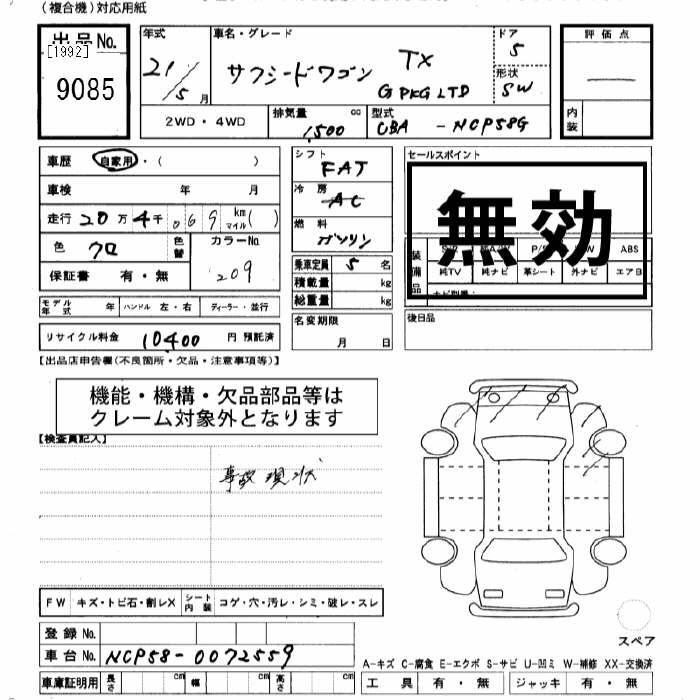 (複合機)対応用紙
出品No.
[1992]
9085
年式
21/5月
車名・グレード
サクシードワゴン TX
G PKG LTD
ドア
5
形状
SW
評価点
内装
2WD・4WD
排気量 cc
1500
型式
CBA - NCP58G
車歴 自家用・( )
車検 年 月
走行 20万4千069 km マイル( )
色 クロ 色替
カラーNo.
209
保証書 有・無
モデル年式 年 ハンドル 左・右 ディーラー・並行
リサイクル料金 10400 円 預託済
シフト
FAT
冷房
AC
燃料
ガソリン
乗車定員 5 名
積載量 kg
総重量 kg
名変期限
月 日
セールスポイント
無効
装備品
ABS
純TV 純ナビ 革シート 外ナビ エアB
後日品
【出品店申告欄(不良箇所・欠品・注意事項等)】
機能・機構・欠品部品等は
クレーム対象外となります
【検査員記入】
事故現状
FW キズ・トビ石・割レX シート内装 コゲ・穴・汚レ・シミ・破レ・スレ
登録No.
車台No. NCP58-0072559
車庫証明用 長さ cm 幅 cm 高さ cm
スペア
A-キズ C-腐食 E-エクボ S-サビ U-凹ミ W-補修 XX-交換済
工具 有・無 ジャッキ 有・無